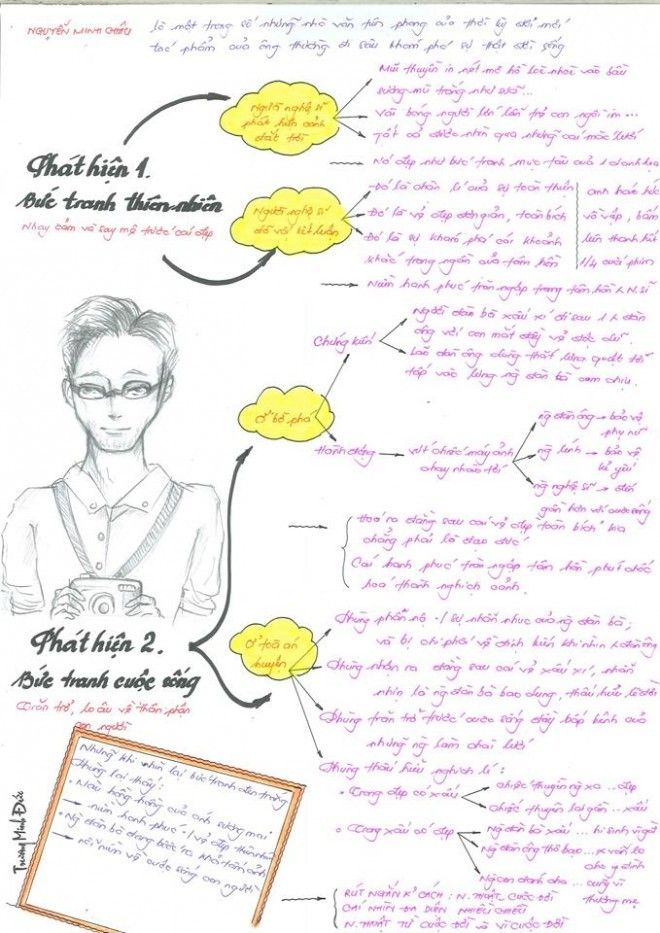 NGUYỄN MINH CHÂU
là một trong số những nhà văn tiên phong của thời kỳ đổi mới
tác phẩm của ông thường đi sâu khám phá sự thật đời sống
Phát hiện 1.
Bức tranh thiên nhiên
Nhạy cảm và say mê trước cái đẹp
Người nghệ sĩ
phát hiện cảnh
đất trời
Mũi thuyền in nét mơ hồ loè nhoè vào bầu
sương mù trắng như sữa...
Vài bóng người lớn lẫn trẻ con ngồi im...
Tất cả được nhìn qua những cái mắc lưới
Nó đẹp như bức tranh mực tàu của 1 danh họa
Người nghệ sĩ
đó với kết luận
Đó là chân lí của sự toàn thiện
Đó là vẻ đẹp đơn giản, toàn bích
Đó là sự khám phá cái khoảnh
khắc trong ngần của tâm hồn
anh hào hứ
vồ vập, bấm
liên thanh hết
1/4 cuốn phim
Niềm hạnh phúc tràn ngập trong tâm hồn N. sĩ
Ở bờ phá
Chứng kiến
Người đàn bà xấu xí đi sau 1 đàn
ông với con mắt đầy vẻ độc dữ.
Lão đàn ông dùng thắt lưng quật tới
tấp vào lưng ng đàn bà cam chịu.
Hành động
vứt chiếc máy ảnh
chạy nhào tới
ng đàn ông → bảo vệ
phụ nữ
ng lính → bảo vệ
kẻ yếu
ng nghệ sĩ → đến
gần hơn với cuộc sống
Hoá ra đằng sau cái vẻ đẹp toàn bích kia
chẳng phải là đạo đức
Cái hạnh phúc tràn ngập tâm hồn phút chốc
hoá thành nghịch cảnh.
Phát hiện 2.
Bức tranh cuộc sống
Trăn trở, lo âu về thân phận
con người
Ở toà án
huyện
Phùng phẫn nộ - / sự nhẫn nhục của ng đàn bà;
và bị chi phối về định kiến khi nhìn đàn ông
Phùng nhận ra đằng sau cái vẻ xấu xí, nhẫn
nhịn là ng đàn bà bao dung, thấu hiểu lẽ đời
Phùng trăn trở trước cuộc sống đầy bấp bênh của
những ng làm chài lưới
Phùng thấu hiểu nghịch lí:
• Trong đẹp có xấu
chiếc thuyền ng xa ... đẹp
chiếc thuyền lại gần ... xấu
• Trong xấu có đẹp
Ng đàn bà xấu ... hi sinh vì
Ng đàn ông thô bạo ... lo
cho gia đình
Ng con đánh cha ... cũng vì
thương mẹ
RÚT NGẮN K/ CÁCH: N. THUẬT, CUỘC ĐỜI
CÁI NHÌN ĐA DIỆN NHIỀU CHIỀU
N. THUẬT TỪ CUỘC ĐỜI VÀ VÌ CUỘC ĐỜI
Những khi nhìn lại bức tranh đen trắng
Phùng lại thấy:
• Màu hồng hồng của ánh sương mai
→ niềm hạnh phúc - / vẻ đẹp thiên nhiên
• Ng đàn bà đang bước ra khỏi tấm ảnh
→ nỗi niềm về cuộc sống con người
Trương Minh Đức